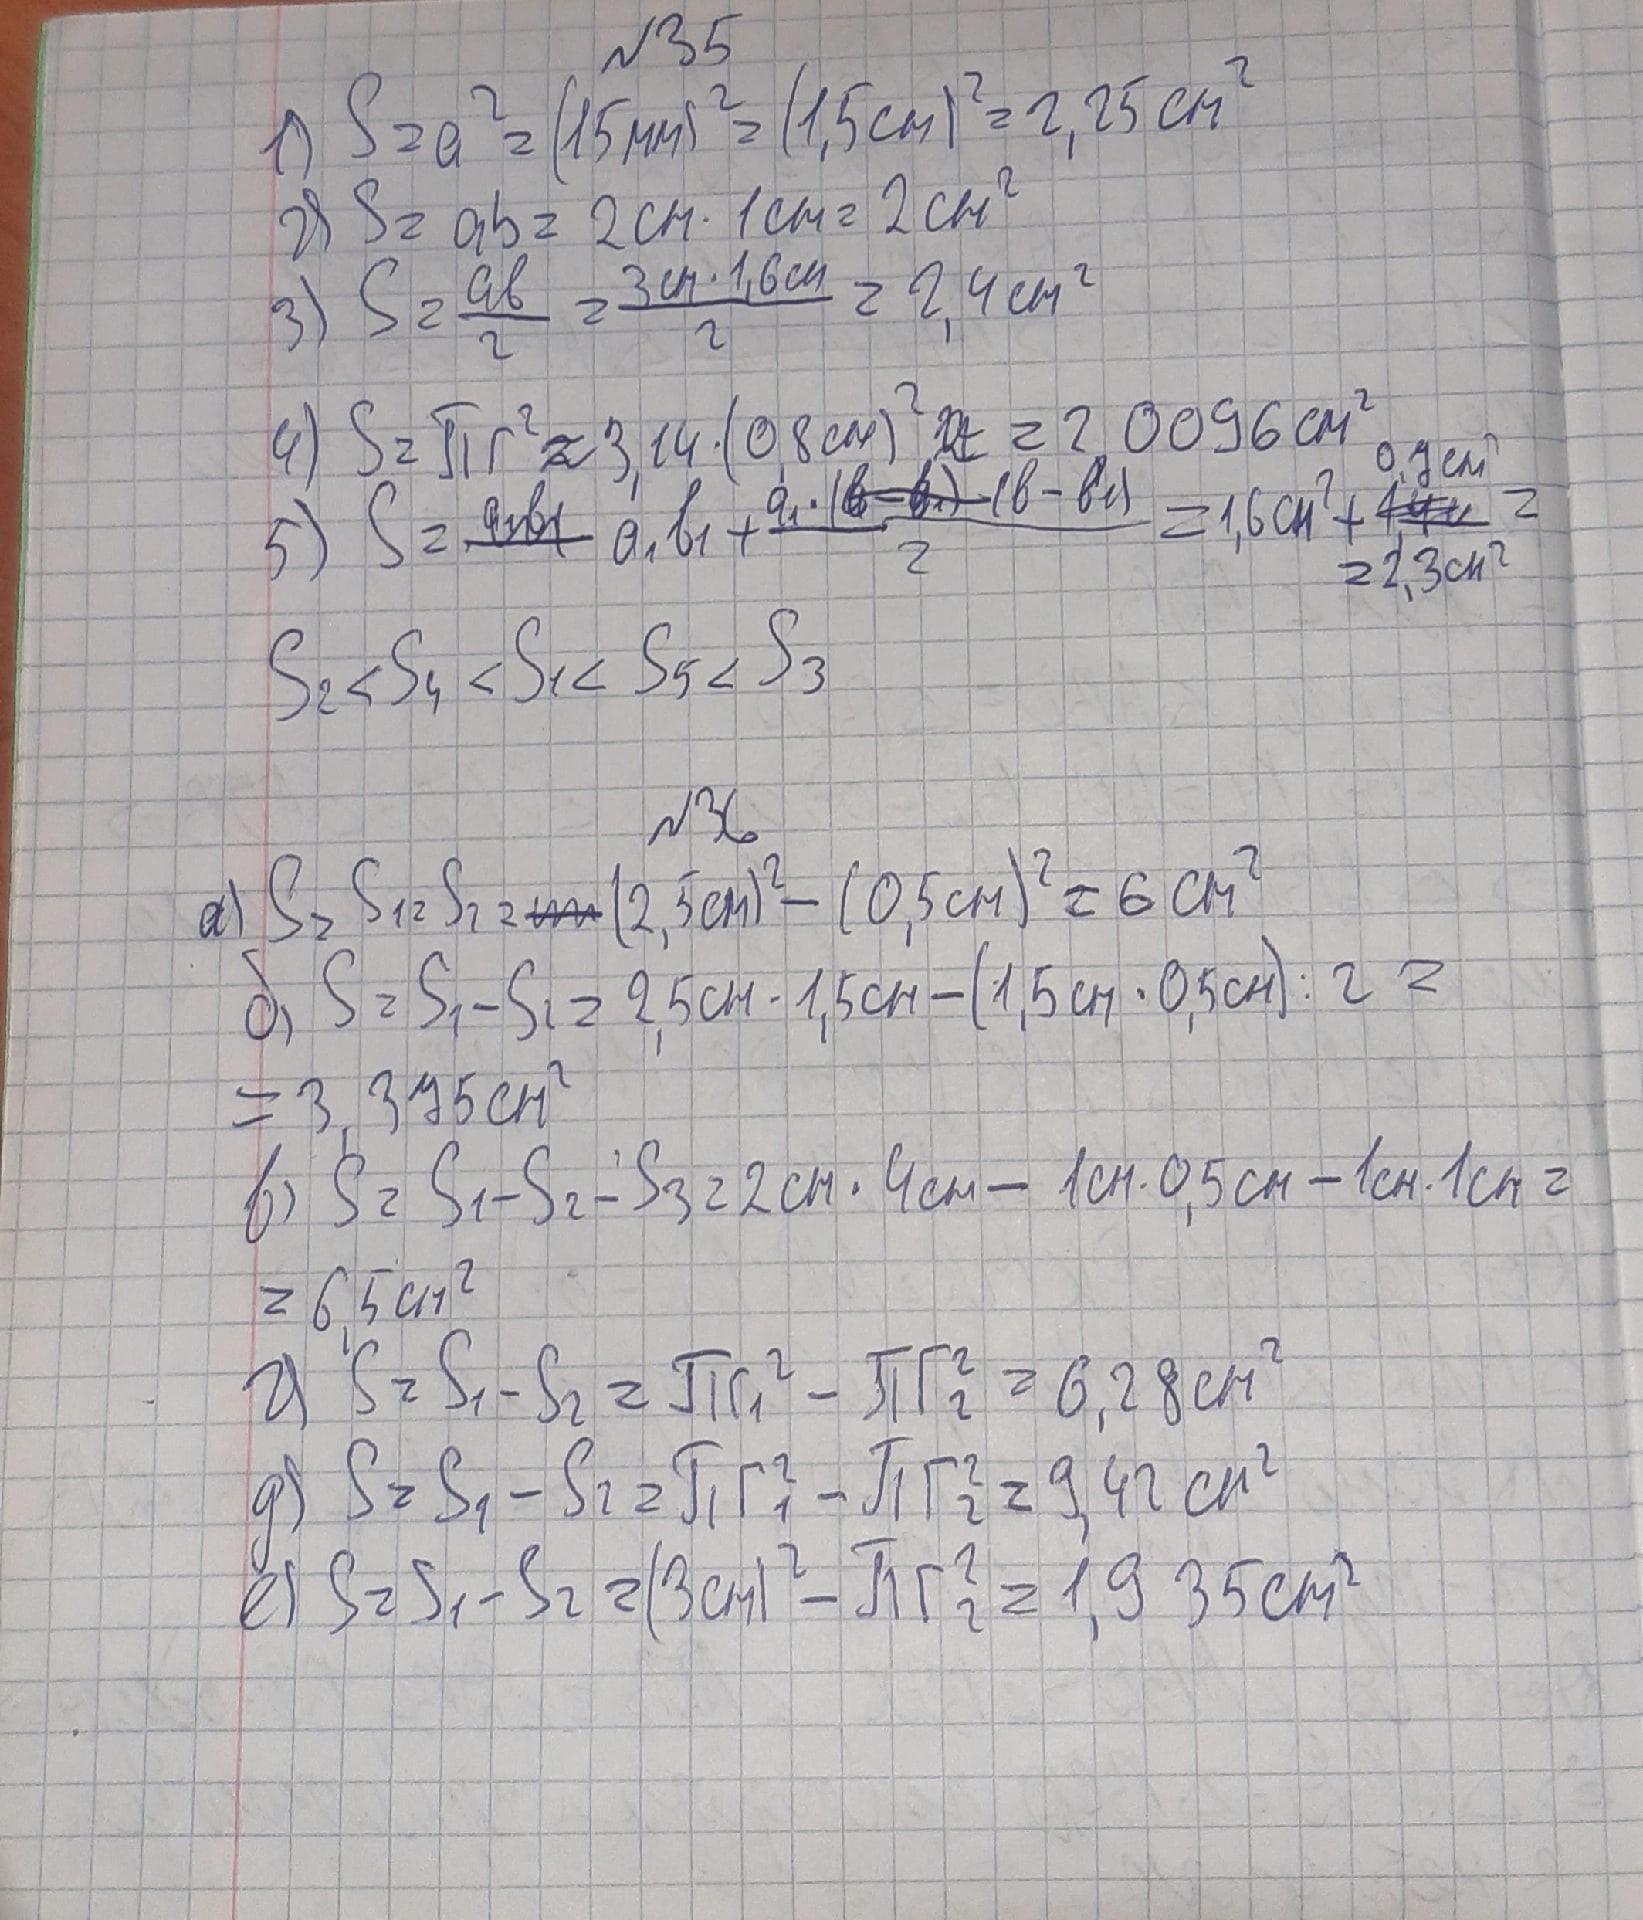 №35
1) S = a² = (15мм)² = (1,5см)² = 2,25см²
2) S = ab = 2см · 1см = 2см²
3) S = ав/2 = 3см·1,6см/2 = 2,4см²
4) S = πr² ≈ 3,14·(0,8см)² = 2,0096см²
5) S = a₁b₁ + a₁·(в-в₁)/2 = 1,6см² + 0,7см² =
= 2,3см²
S₂ < S₄ < S₁ < S₅ < S₃
№36
а) S = S₁ = S₂ = (2,5см)² - (0,5см)² = 6см²
б) S = S₁ - S₂ = 2,5см · 1,5см - (1,5см · 0,5см) : 2 =
= 3,375см²
в) S = S₁ - S₂ - S₃ = 2см · 4см - 1см·0,5см - 1см·1см =
= 6,5см²
г) S = S₁ - S₂ = πr₁² - πr₂² = 6,28см²
д) S = S₁ - S₂ = πr₁² - πr₂² = 9,42см²
е) S = S₁ - S₂ = (3см)² - πr₂² = 1,935см²